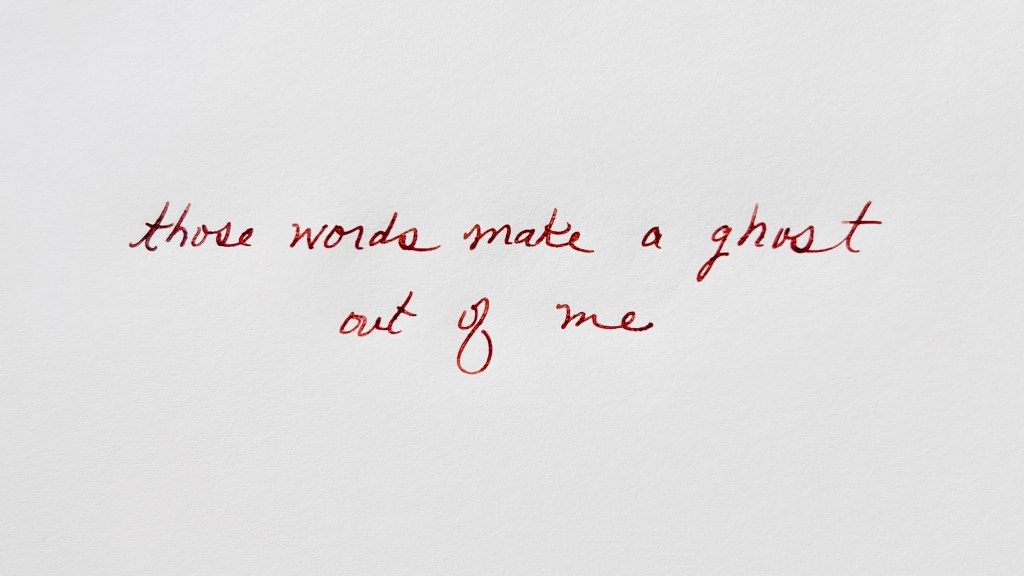 those words make a ghost
out of me